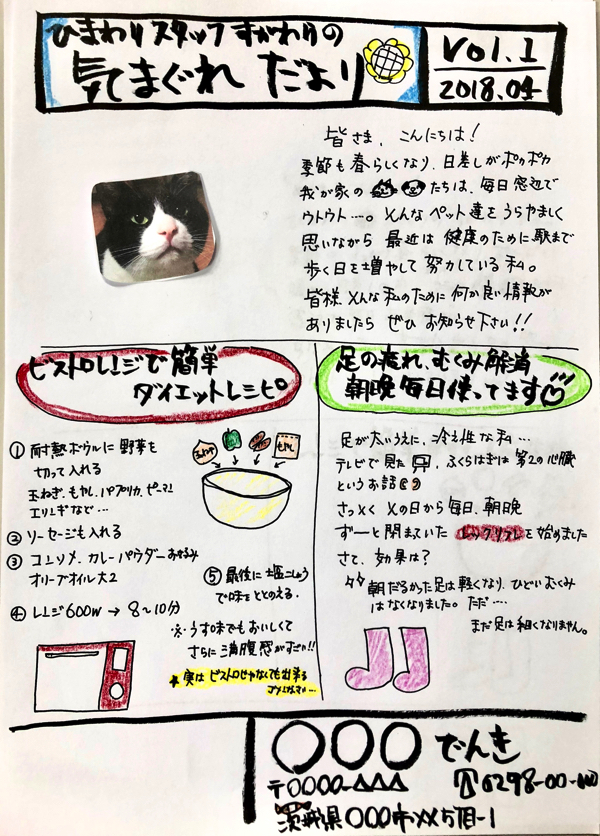 ひまわりスタッフ すがわりの
気まぐれ だより
Vol.1
2018.04
皆さま、こんにちは！
季節も春らしくなり、日差しがポカポカ
我が家の たちは、毎日窓辺で
ウトウト…。そんなペット達をうらやましく
思いながら 最近は 健康のために駅まで
歩く日を増やして 努力している 私。
皆様 そんな私のために 何か良い情報が
ありましたら ぜひ お知らせ下さい!!
ビストロレンジで簡単
ダイエットレシピ
① 耐熱ボウルに 野菜を
切って入れる
玉ねぎ、もやし、パプリカ、ピーマン
エリンギなど…
② ソーセージも入れる
③ コンソメ、カレーパウダー
オリーブオイル大2
④ レンジ600w → 8〜10分
もやし
⑤ 最後に 塩こしょう
で味をととのえる。
※うす味でもおいしくて
さらに 満腹感がすごい!!
★実は ビストロじゃなくても出来る
足の疲れ、むくみ解消
朝晩 毎日使ってます
足が太いうえに、冷え性な私…
テレビで見た 、ふくらはぎは 第2の心臓
というお話
さっそく その日から毎日、朝晩
ずーっと閉まっていた レッグリフレを始めました
さて、効果は？
朝だるかった足は軽くなり、ひどいむくみ
はなくなりました。ただ…
まだ足は細くなりません。
〇〇〇 でんき
〒〇〇〇〇-△△△
☎0298-00-
茨城県〇〇〇市××万目-1